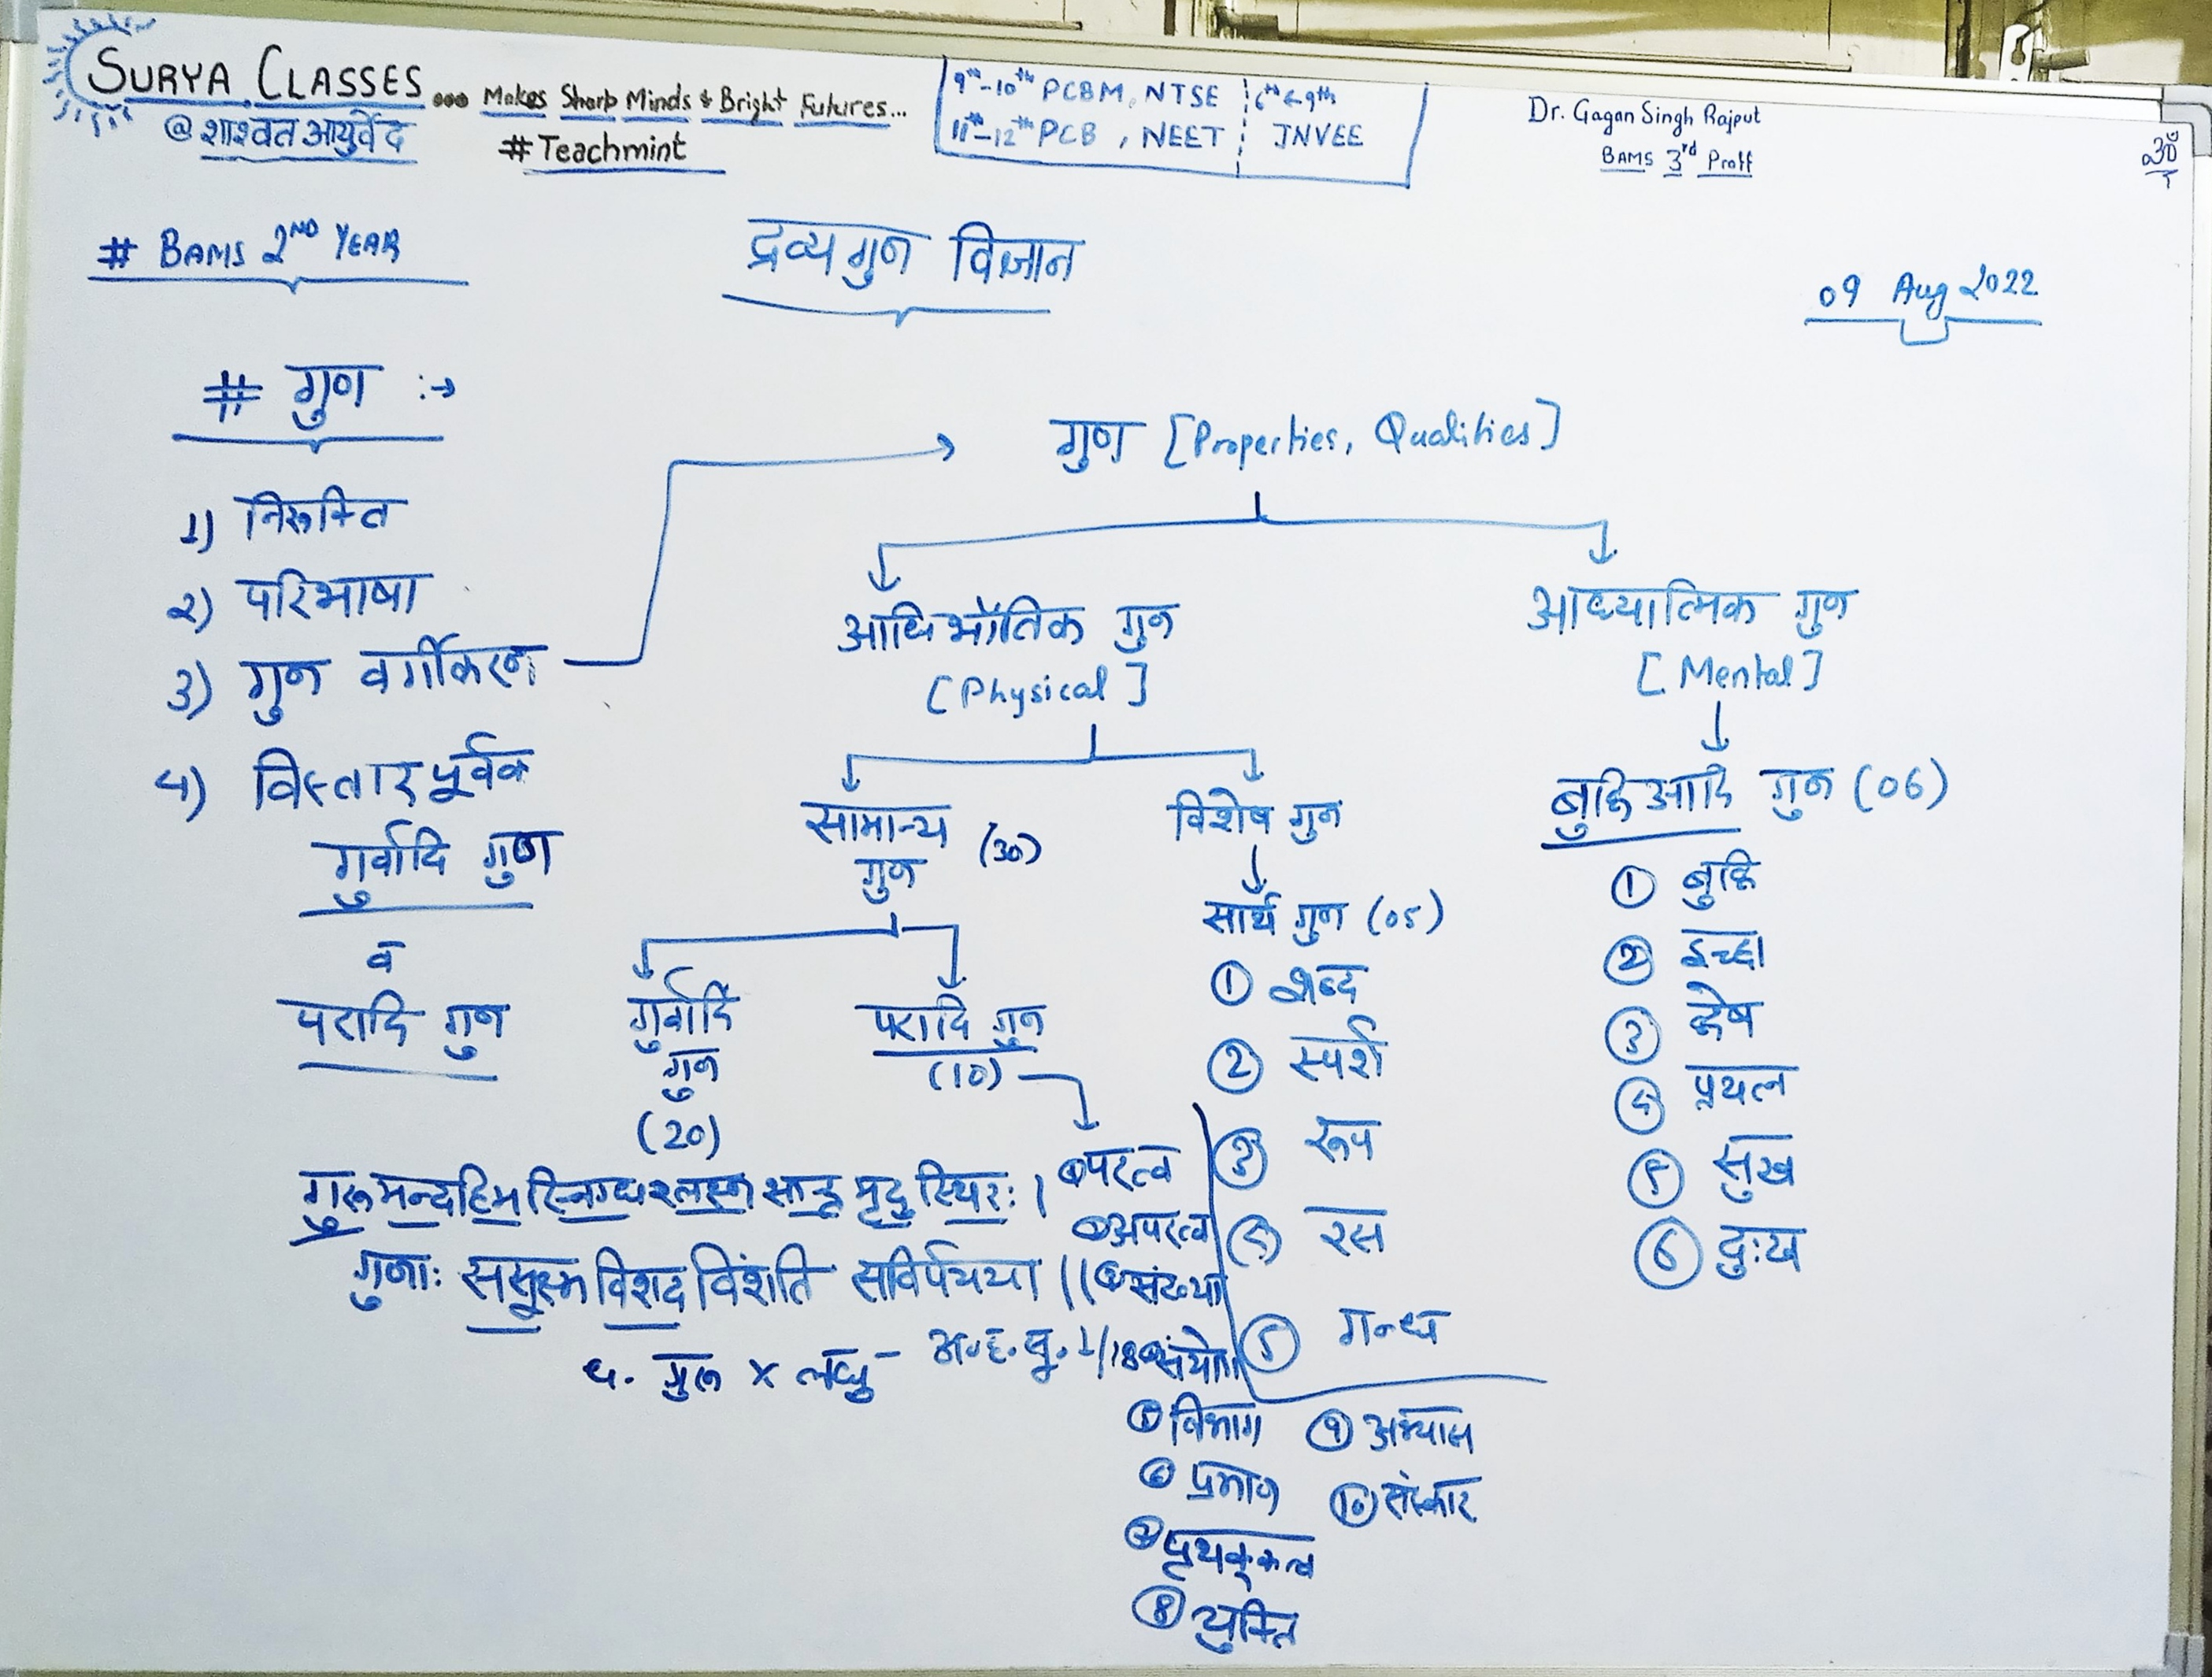 SURYA CLASSES ... Makes Sharp Minds & Bright Futures...
@शाश्वत आयुर्वेद
# Teachmint
9th-10th PCBM, NTSE
11th-12th PCB, NEET
6th & 9th
JNVEE
Dr. Gagan Singh Rajput
BAMS 3rd Proff
# BAMS 2ND YEAR
द्रव्यगुण विज्ञान
09 Aug 2022
# गुण :→
1) निरूक्ति
2) परिभाषा
3) गुण वर्गीकरण
4) विस्तारपूर्वक
गुर्वादि गुण
व
परादि गुण
गुण [Properties, Qualities]
आधिभौतिक गुण
[Physical]
आध्यात्मिक गुण
[Mental]
सामान्य
गुण (30)
विशेष गुण
सार्थ गुण (05)
① शब्द
② स्पर्श
③ रूप
④ रस
⑤ गन्ध
बुद्धिआदि गुण (06)
① बुद्धि
② इच्छा
③ द्वेष
④ प्रयत्न
⑤ सुख
⑥ दुःख
गुर्वादि
गुण
(20)
परादि गुण
(10)
① परत्व
② अपरत्व
③ संख्या
④ संयोग
⑤ विभाग
⑥ प्रमाण
⑦ पृथक्कत्व
⑧ युक्ति
⑨ अभ्यास
⑩ संस्कार
गुरूमन्दहिमस्निग्धश्लक्ष्ण सान्द्र मृदु स्थिरः ।
गुणाः ससूक्ष्म विशद विंशति सविर्पयया ॥
गुरू x लघु - अ.ह.सू. 1/18